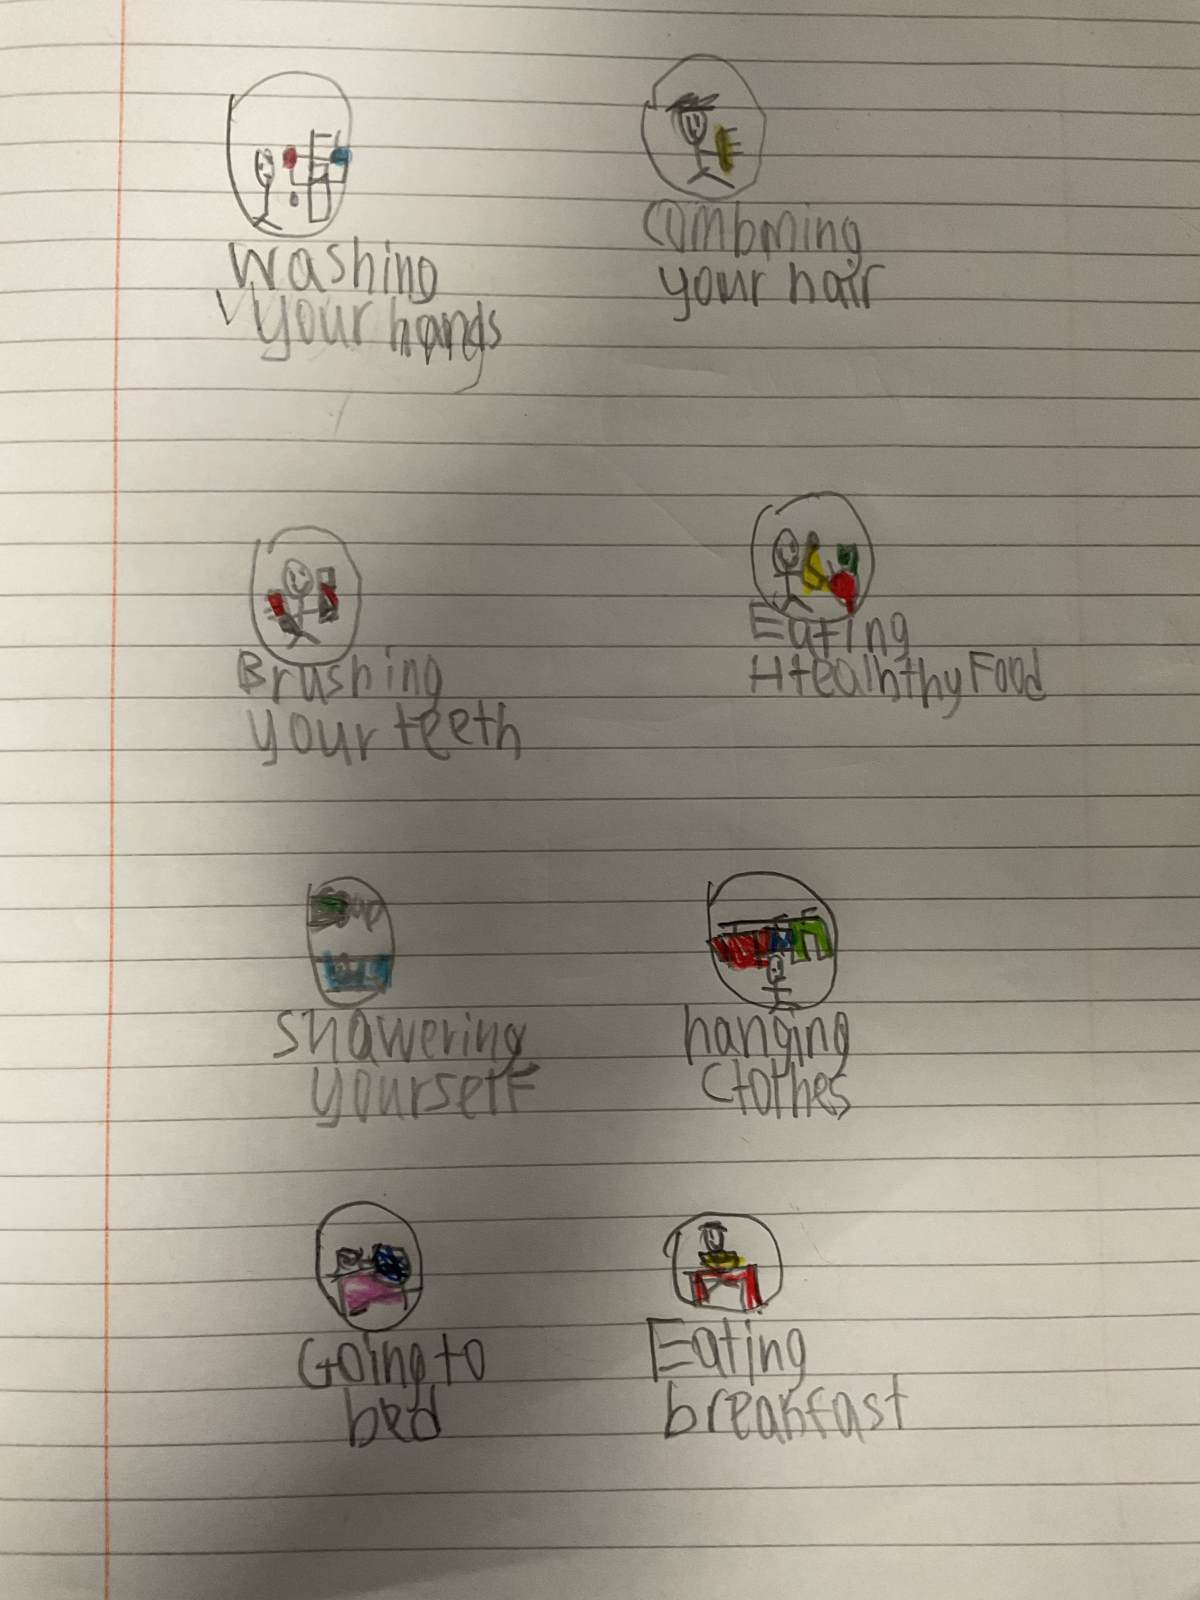 Washing
your hands
Combming
your hair
Brushing
your teeth
Eating
Htealhthy Food
Soap
Shawering
yourself
hanging
Clothes
Going to
bed
Eating
breakfast